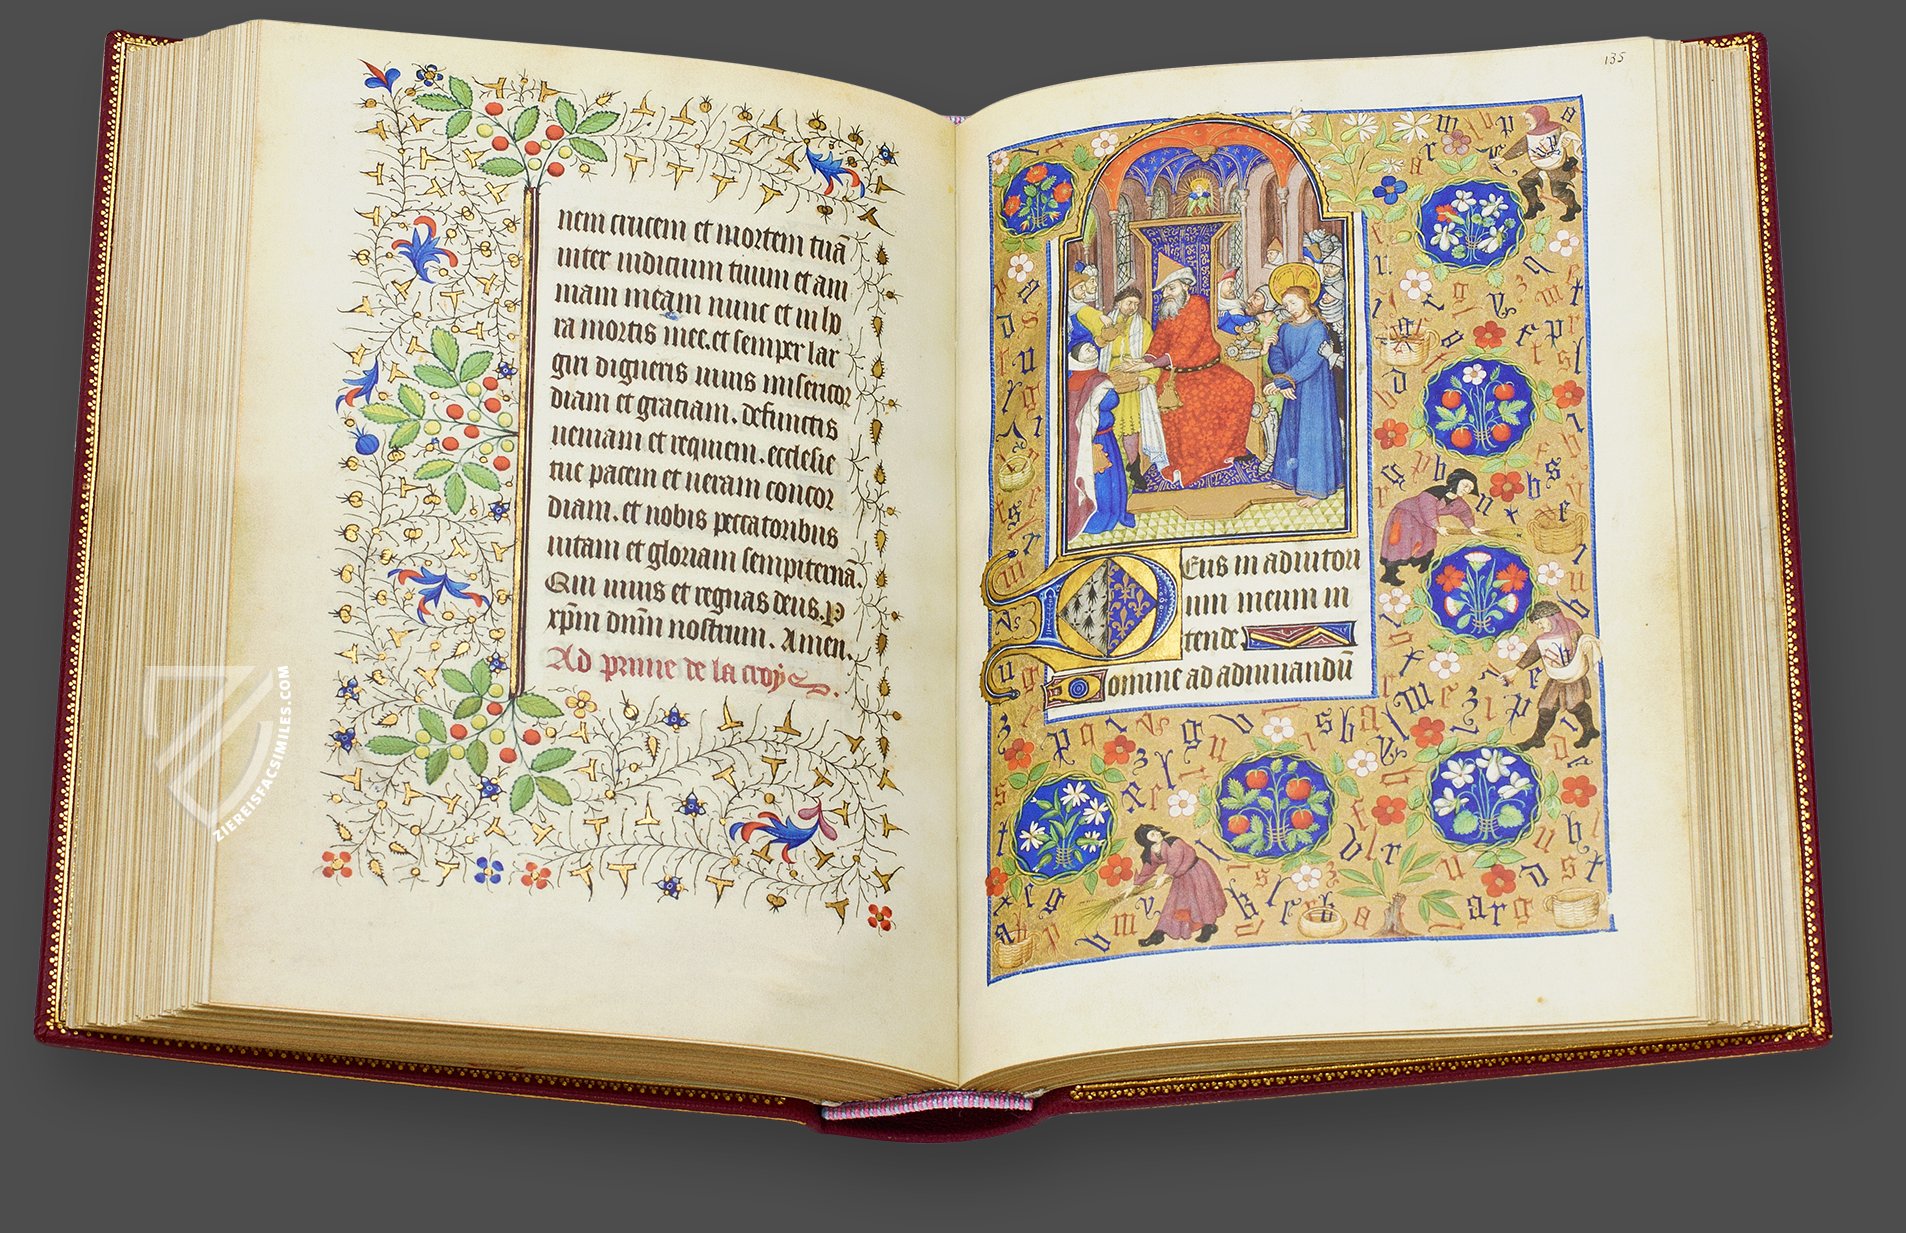 nem crucem et mortem tuā
inter iudicium tuum et ani
mam meam nunc et in ho
ra mortis mee. et semper lar
giri digneris uiuis misericor
diam et graciam. defunctis
ueniam et requiem. ecclesie
tue pacem et ueram concor
diam. et nobis peccatoribus
uitam et gloriam sempiternā.
Qui uiuis et regnas deus. P
xp̄m dn̄m nostrum. Amen.
Ad prime de la croys.
135
Deus in adiutori
um meum in
tende
Domine ad adiuuandū
ZIEREISFACSIMILES.COM